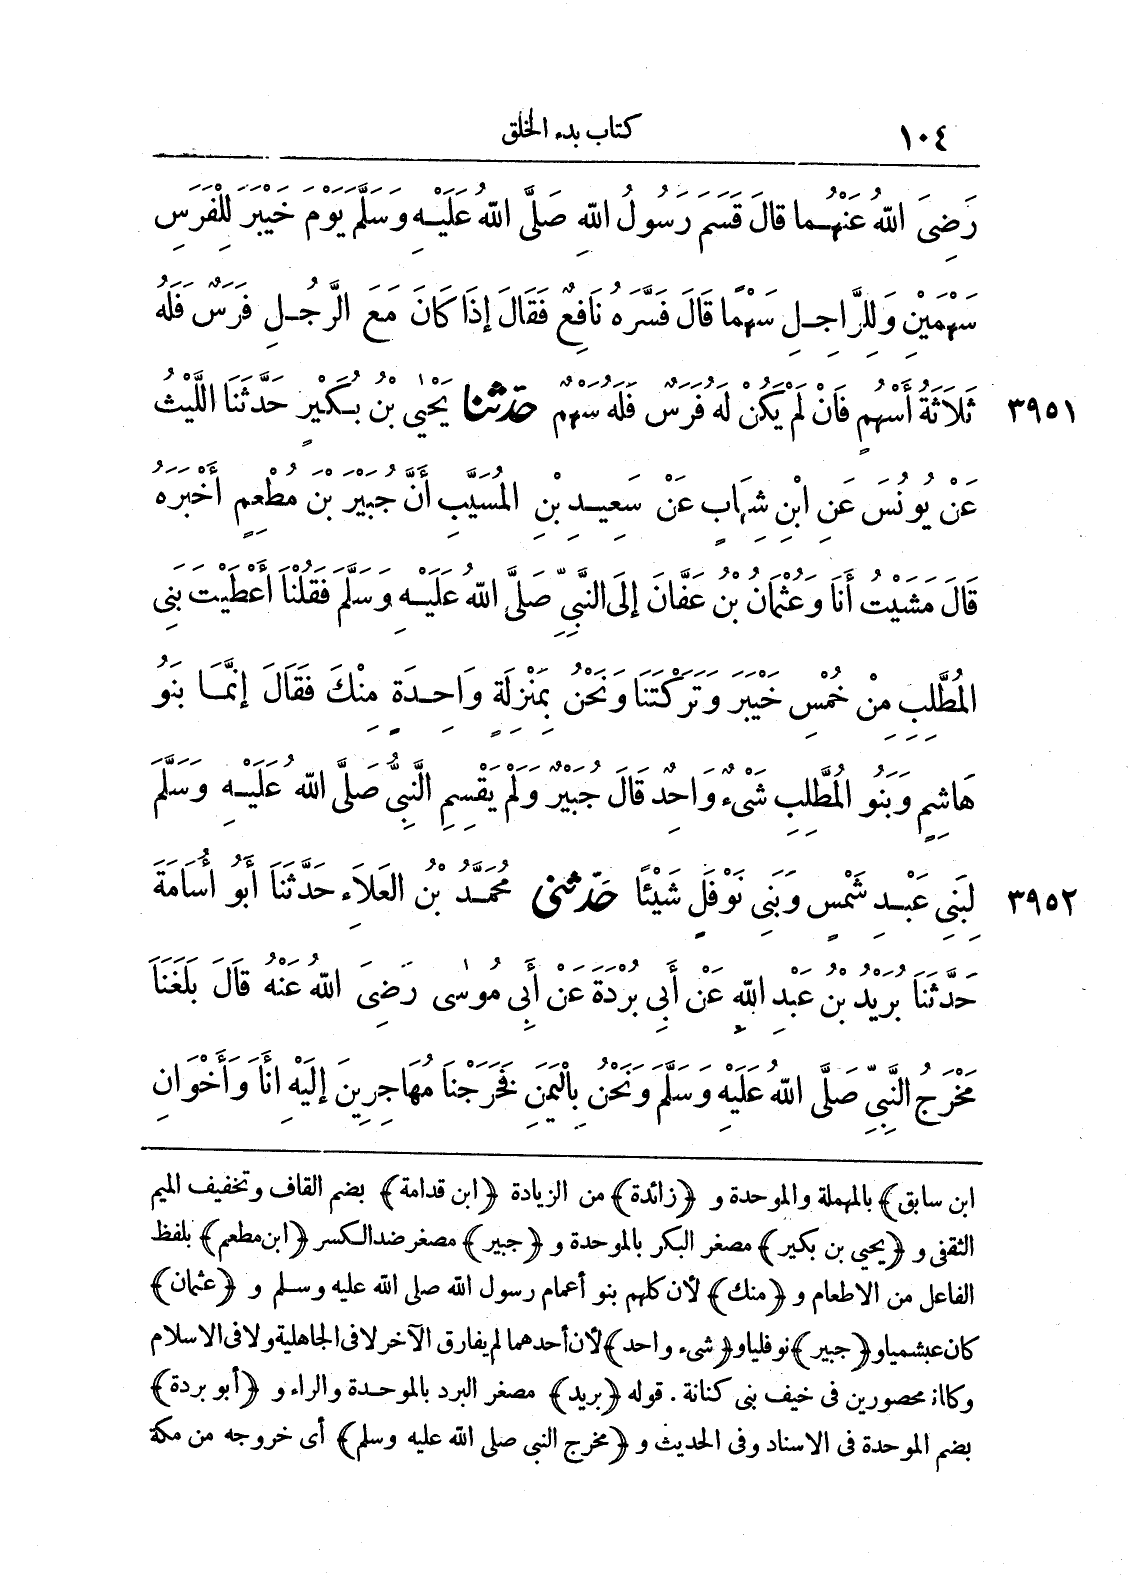 ١٠٤ كتاب بدء الخلق
رَضِىَ اللهُ عَنْهُما قالَ قَسَمَ رَسُولُ اللهِ صَلَّى اللهُ عَلَيْهِ وَسَلَّمَ يَوْمَ خَيْبَرَ لِلْفَرَسِ
سَهْمَيْنِ وَلِلرَّاجِلِ سَهْمًا قَالَ فَسَّرَهُ نَافِعٌ فَقَالَ إِذَا كَانَ مَعَ الرَّجُلِ فَرَسٌ فَلَهُ
٣٩٥١ ثَلَاثَةُ أَسْهُمٍ فَانْ لَمْ يَكُنْ لَهُ فَرَسٌ فَلَهُ سَهْمٌ حَدَّثَنَا يَحْيَى بْنُ بُكَيْرٍ حَدَّثَنَا اللَّيْثُ
عَنْ يُونُسَ عَنِ ابْنِ شِهَابٍ عَنْ سَعِيدِ بْنِ المُسَيَّبِ أَنَّ جُبَيْرَ بْنَ مُطْعِمٍ أَخْبَرَهُ
قَالَ مَشَيْتُ أَنَا وَعُثْمَانُ بْنُ عَفَّانَ إِلَى النَّبِيِّ صَلَّى اللهُ عَلَيْهِ وَسَلَّمَ فَقُلْنَا أَعْطَيْتَ بَنِى
المُطَّلِبِ مِنْ خُمْسِ خَيْبَرَ وَتَرَكْتَنَا وَنَحْنُ بِمَنْزِلَةٍ وَاحِدَةٍ مِنْكَ فَقَالَ إِنَّمَا بَنُو
هَاشِمٍ وَبَنُو المُطَّلِبِ شَىْءٌ وَاحِدٌ قَالَ جُبَيْرٌ وَلَمْ يَقْسِمِ النَّبِيُّ صَلَّى اللهُ عَلَيْهِ وَسَلَّمَ
٣٩٥٢ لِبَنِى عَبْدِ شَمْسٍ وَبَنِى نَوْفَلٍ شَيْئًا حَدَّثَنِى مُحَمَّدُ بْنُ العَلَاءِ حَدَّثَنَا أَبُو أُسَامَةَ
حَدَّثَنَا بُرَيْدُ بْنُ عَبْدِ اللهِ عَنْ أَبِى بُرْدَةَ عَنْ أَبِى مُوسَى رَضِىَ اللهُ عَنْهُ قَالَ بَلَغَنَا
مَخْرَجُ النَّبِيِّ صَلَّى اللهُ عَلَيْهِ وَسَلَّمَ وَنَحْنُ بِالْيَمَنِ فَخَرَجْنَا مُهَاجِرِينَ إِلَيْهِ انَا وَأَخَوَانِ
ابن سابق﴾ بالمهملة والموحدة و ﴿زائدة﴾ من الزيادة ﴿ابن قدامة﴾ بضم القاف وتخفيف الميم
الثقفى و ﴿يحيى بن بكير﴾ مصغر البكر بالموحدة و ﴿جبير﴾ مصغر ضد الكسر ﴿ابن مطعم﴾ بلفظ
الفاعل من الاطعام و ﴿منك﴾ لأن كلهم بنو أعمام رسول الله صلى الله عليه وسلم و ﴿عثمان﴾
كان عبشميا و ﴿جبير﴾ نوفليا و ﴿شىء واحد﴾ لأن أحدهما لم يفارق الآخر لا فى الجاهلية ولا فى الاسلام
وكانا محصورين فى خيف بنى كنانة . قوله ﴿بريد﴾ مصغر البرد بالموحدة والراء و ﴿أبو بردة﴾
بضم الموحدة فى الاسناد وفى الحديث و ﴿مخرج النبي صلى الله عليه وسلم﴾ أى خروجه من مكة